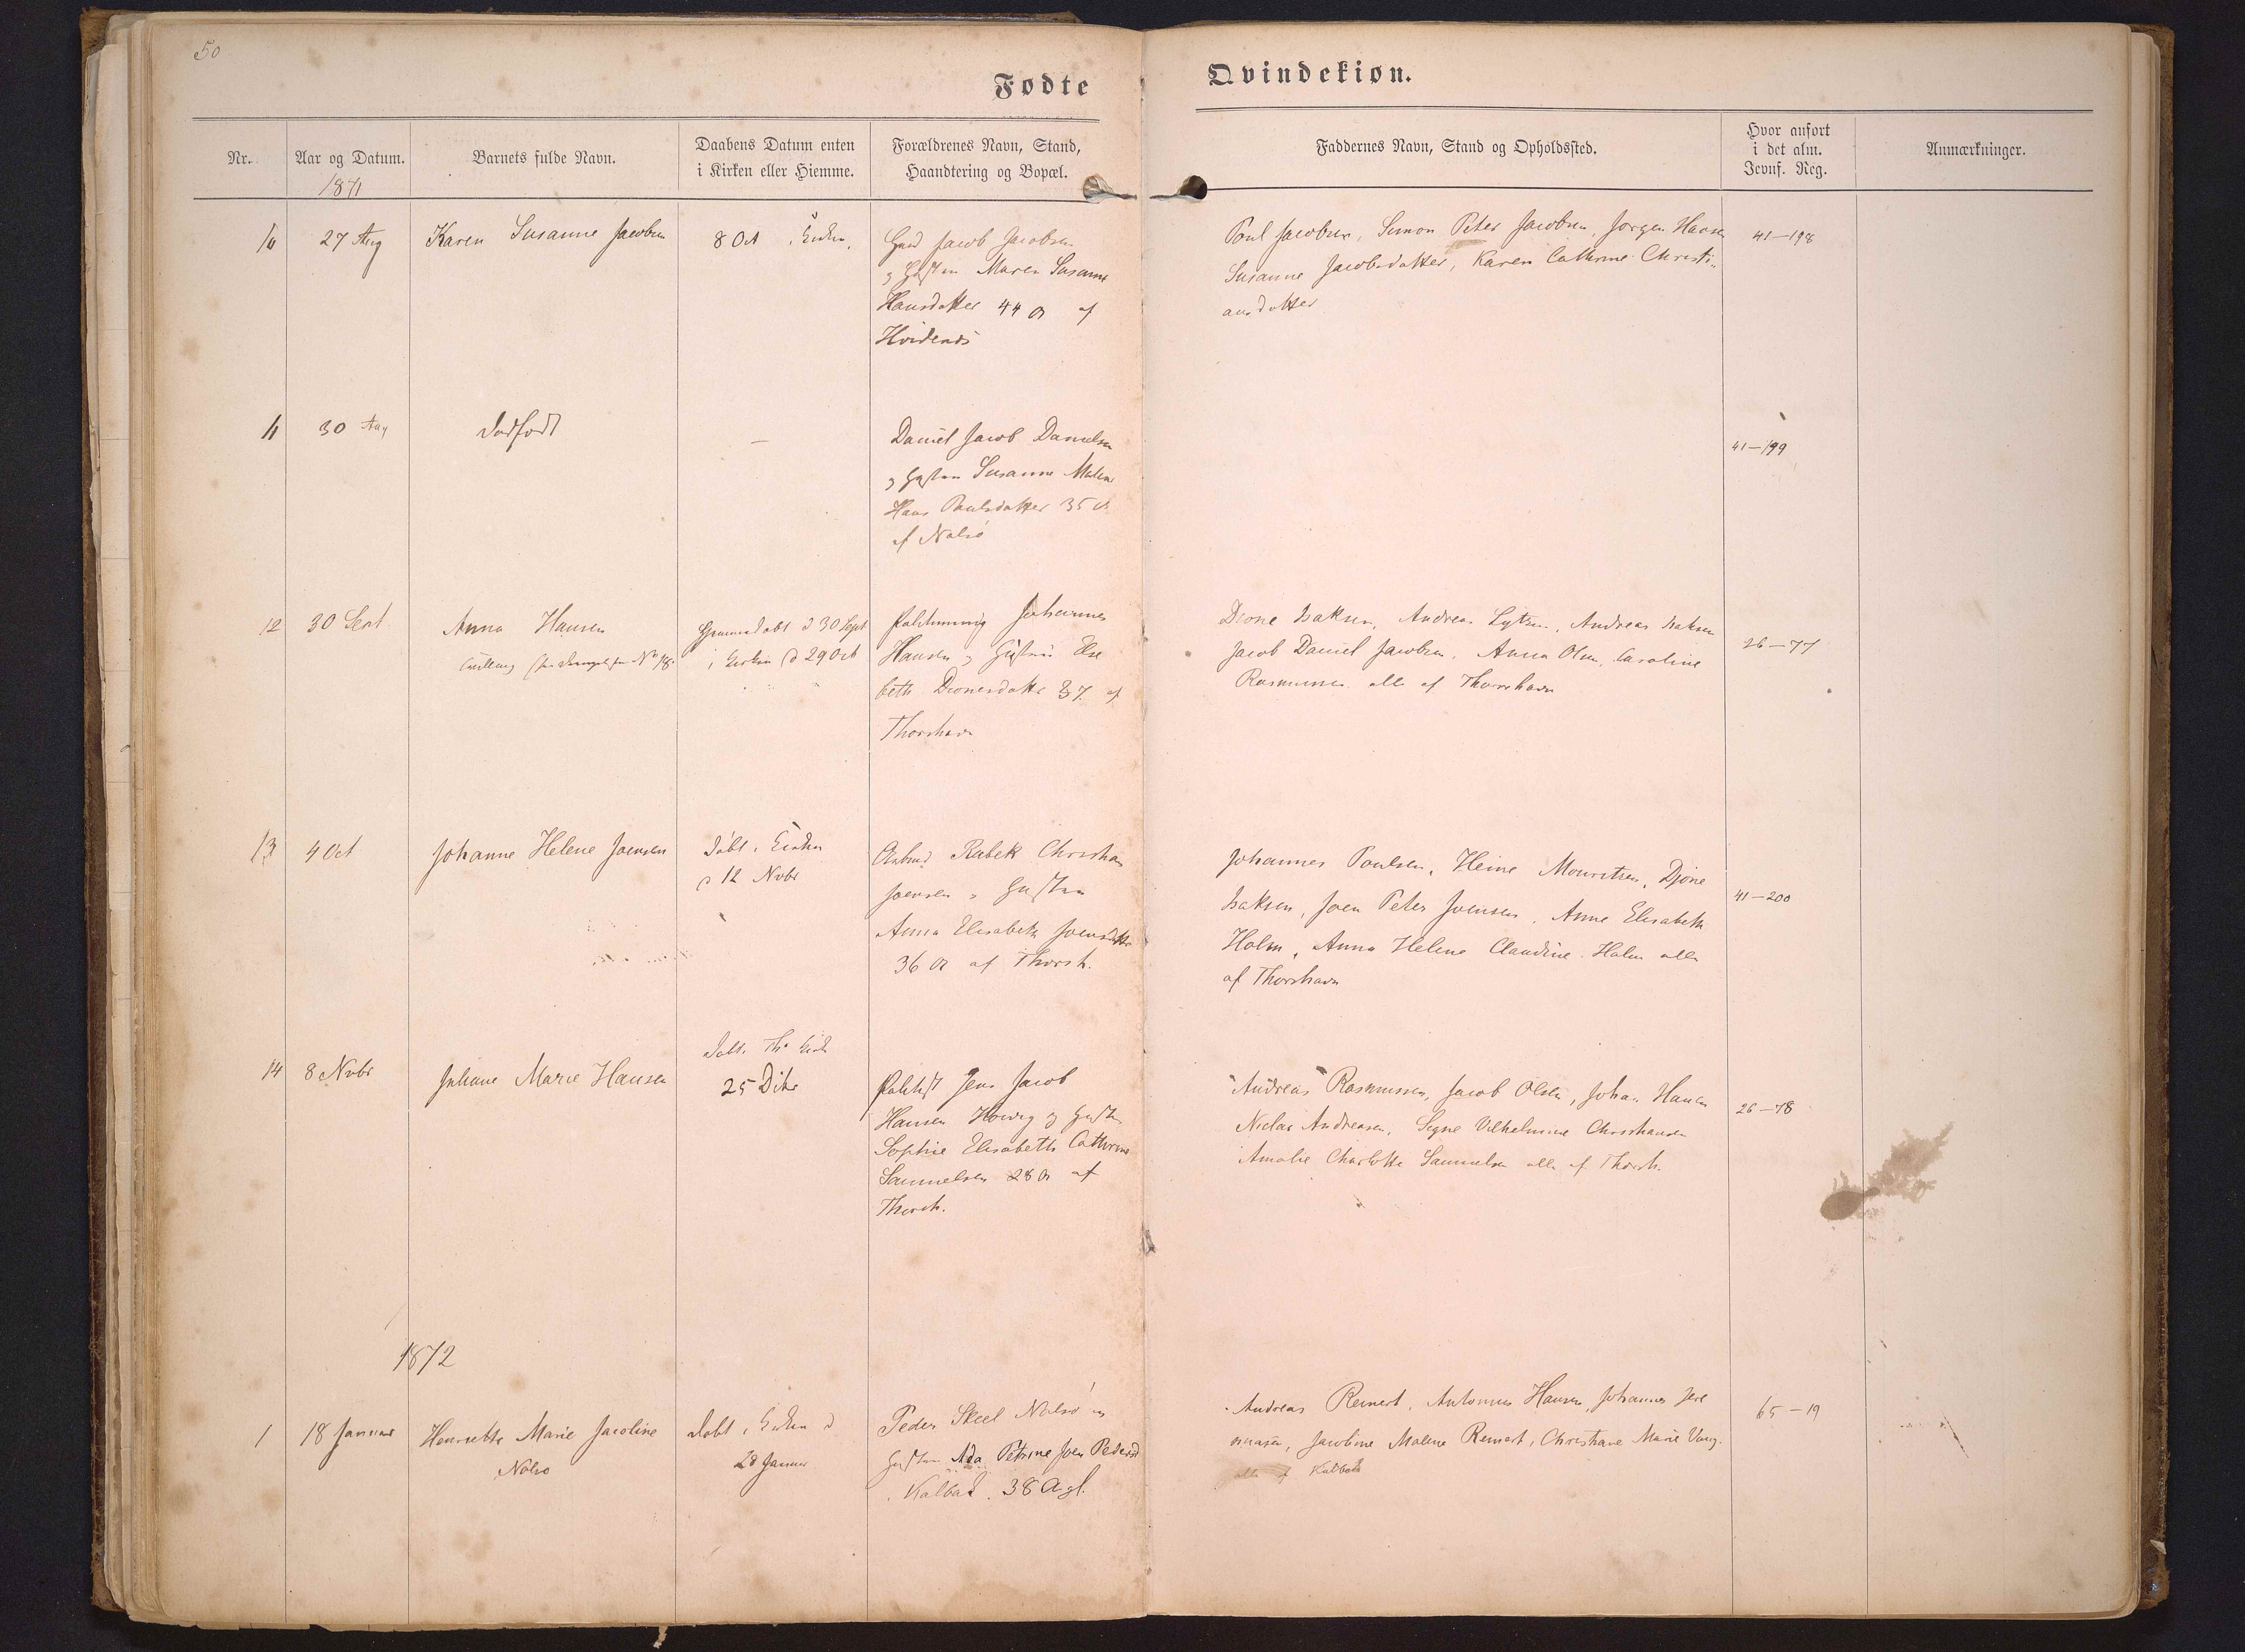 50
Fødte
Qvindekiøn.
Nr.
Aar og Datum.
1871
Barnets fulde Navn.
Daabens Datum enten
i Kirken eller Hiemme.
Forældrenes Navn, Stand,
Haandtering og Bopæl.
Faddernes Navn, Stand og Opholdssted.
Hvor anført
i det alm.
Jevnf. Reg.
Anmærkninger.
10
27 Aug
Karen Susanne Jacobsen
8 Oct i Kirken.
Jacob Jacobsen
og Hustru Maren Susanne
Hansdatter 44 A af
Hvidenæs
Poul Jacobsen, Simon Peter Jacobsen, Jørgen Hansen
Susanne Jacobsdatter, Karen Cathrine Christi-
ansdatter
41-198
11
30 Aug
Dødfødt
—
Daniel Jacob Danielsen
og Hustru Susanne Malene
Hans Poulsdatter 35 A
af Nolsø
41-199
12
30 Sept
Anna Hansen
Tvilling No 18
Hjemmedøbt d 30 Sept
i Kirken d 29 Oct
Johannes
Hansen og Hustru Else
beth Dionesdatter 37 af
Thorshavn
Dione Isaksen, Andreas Lytzen, Andreas Isaksen
Jacob Daniel Jacobsen, Anna Olsen, Caroline
Rasmussen alle af Thorshavn
26-77
13
4 Oct
Johanne Helene Joensen
Døbt i Kirken
d 12 Nvbr
Rubek Christian
Joensen og Hustru
Anna Elisabeth Joensdatter
36 A af Thorsh.
Johannes Poulsen, Heine Mouritsen, Djone
Isaksen, Joen Peter Joensen, Anne Elisabeth
Holm, Anna Helene Claudine Holm alle
af Thorshavn
41-200
14
8 Nvbr
Juliane Marie Hansen
Døbt i Th. Kirke
25 Dcbr
Jens Jacob
Hansen og Hustru
Sophie Elisabeth Cathrine
Samuelsen 28 A af
Thorsh.
Andreas Rasmussen, Jacob Olsen, Johan Hansen
Niclas Andreasen, Signe Vilhelmine Christiansen
Amalie Charlotte Samuelsen alle af Thorsh.
26-78
1872
1
18 Januar
Henriette Marie Jacoline
Nolsø
Døbt i Kirken d
28 Januar
Peder Skeel Nolsø og
Hustru Ada Petrine Joen Pedersd
Kalbak. 38 A gl.
Andreas Reinert, Antonius Hansen, Johannes Jere
miasen, Jacobine Malene Reinert, Christiane Marie Vang.
alle af Kalbak
65-19